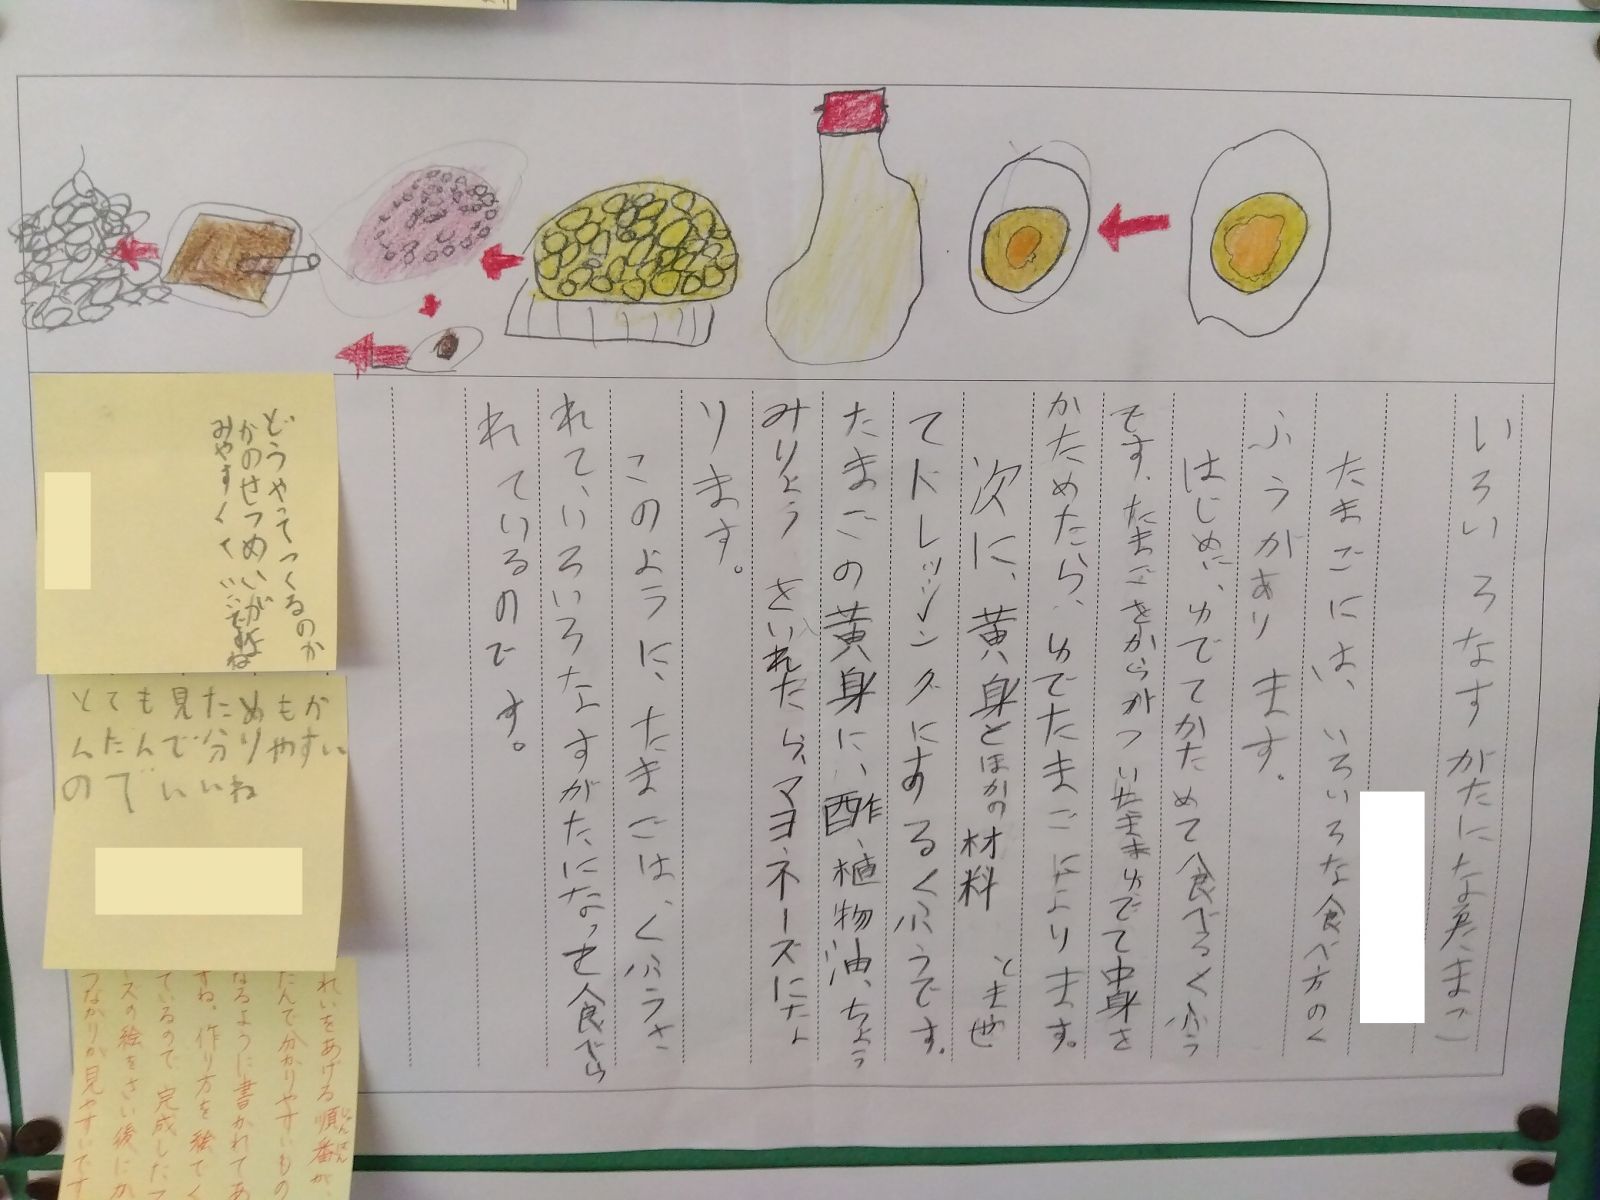 いろいろなすがたになるたまご
たまごには、いろいろな食べ方のく
ふうがあります。
はじめに、ゆでてかためて食べるくふう
です。たまごをからがついたままゆでて中身を
かためたら、ゆでたまごになります。
次に、黄身とほかの材料とまぜ
てドレッシングにするくふうです。
たまごの黄身に、酢、植物油、ちょう
みりょうをいれたら、マヨネーズにな
ります。
このように、たまごは、くふうさ
れていろいろなすがたになって食べら
れているのです。
どうやってつくるのか
かのせつめいが
みやすくていいですね
とても見ためもか
んたんで分りやすい
のでいいね
れいをあげる順番が、
じゅんばん
たんで分かりやすいもの
なるように書かれてあ
すね。作り方を絵でく
ているので、完成したマ
ースの絵をさい後にか
つながりが見やすいです